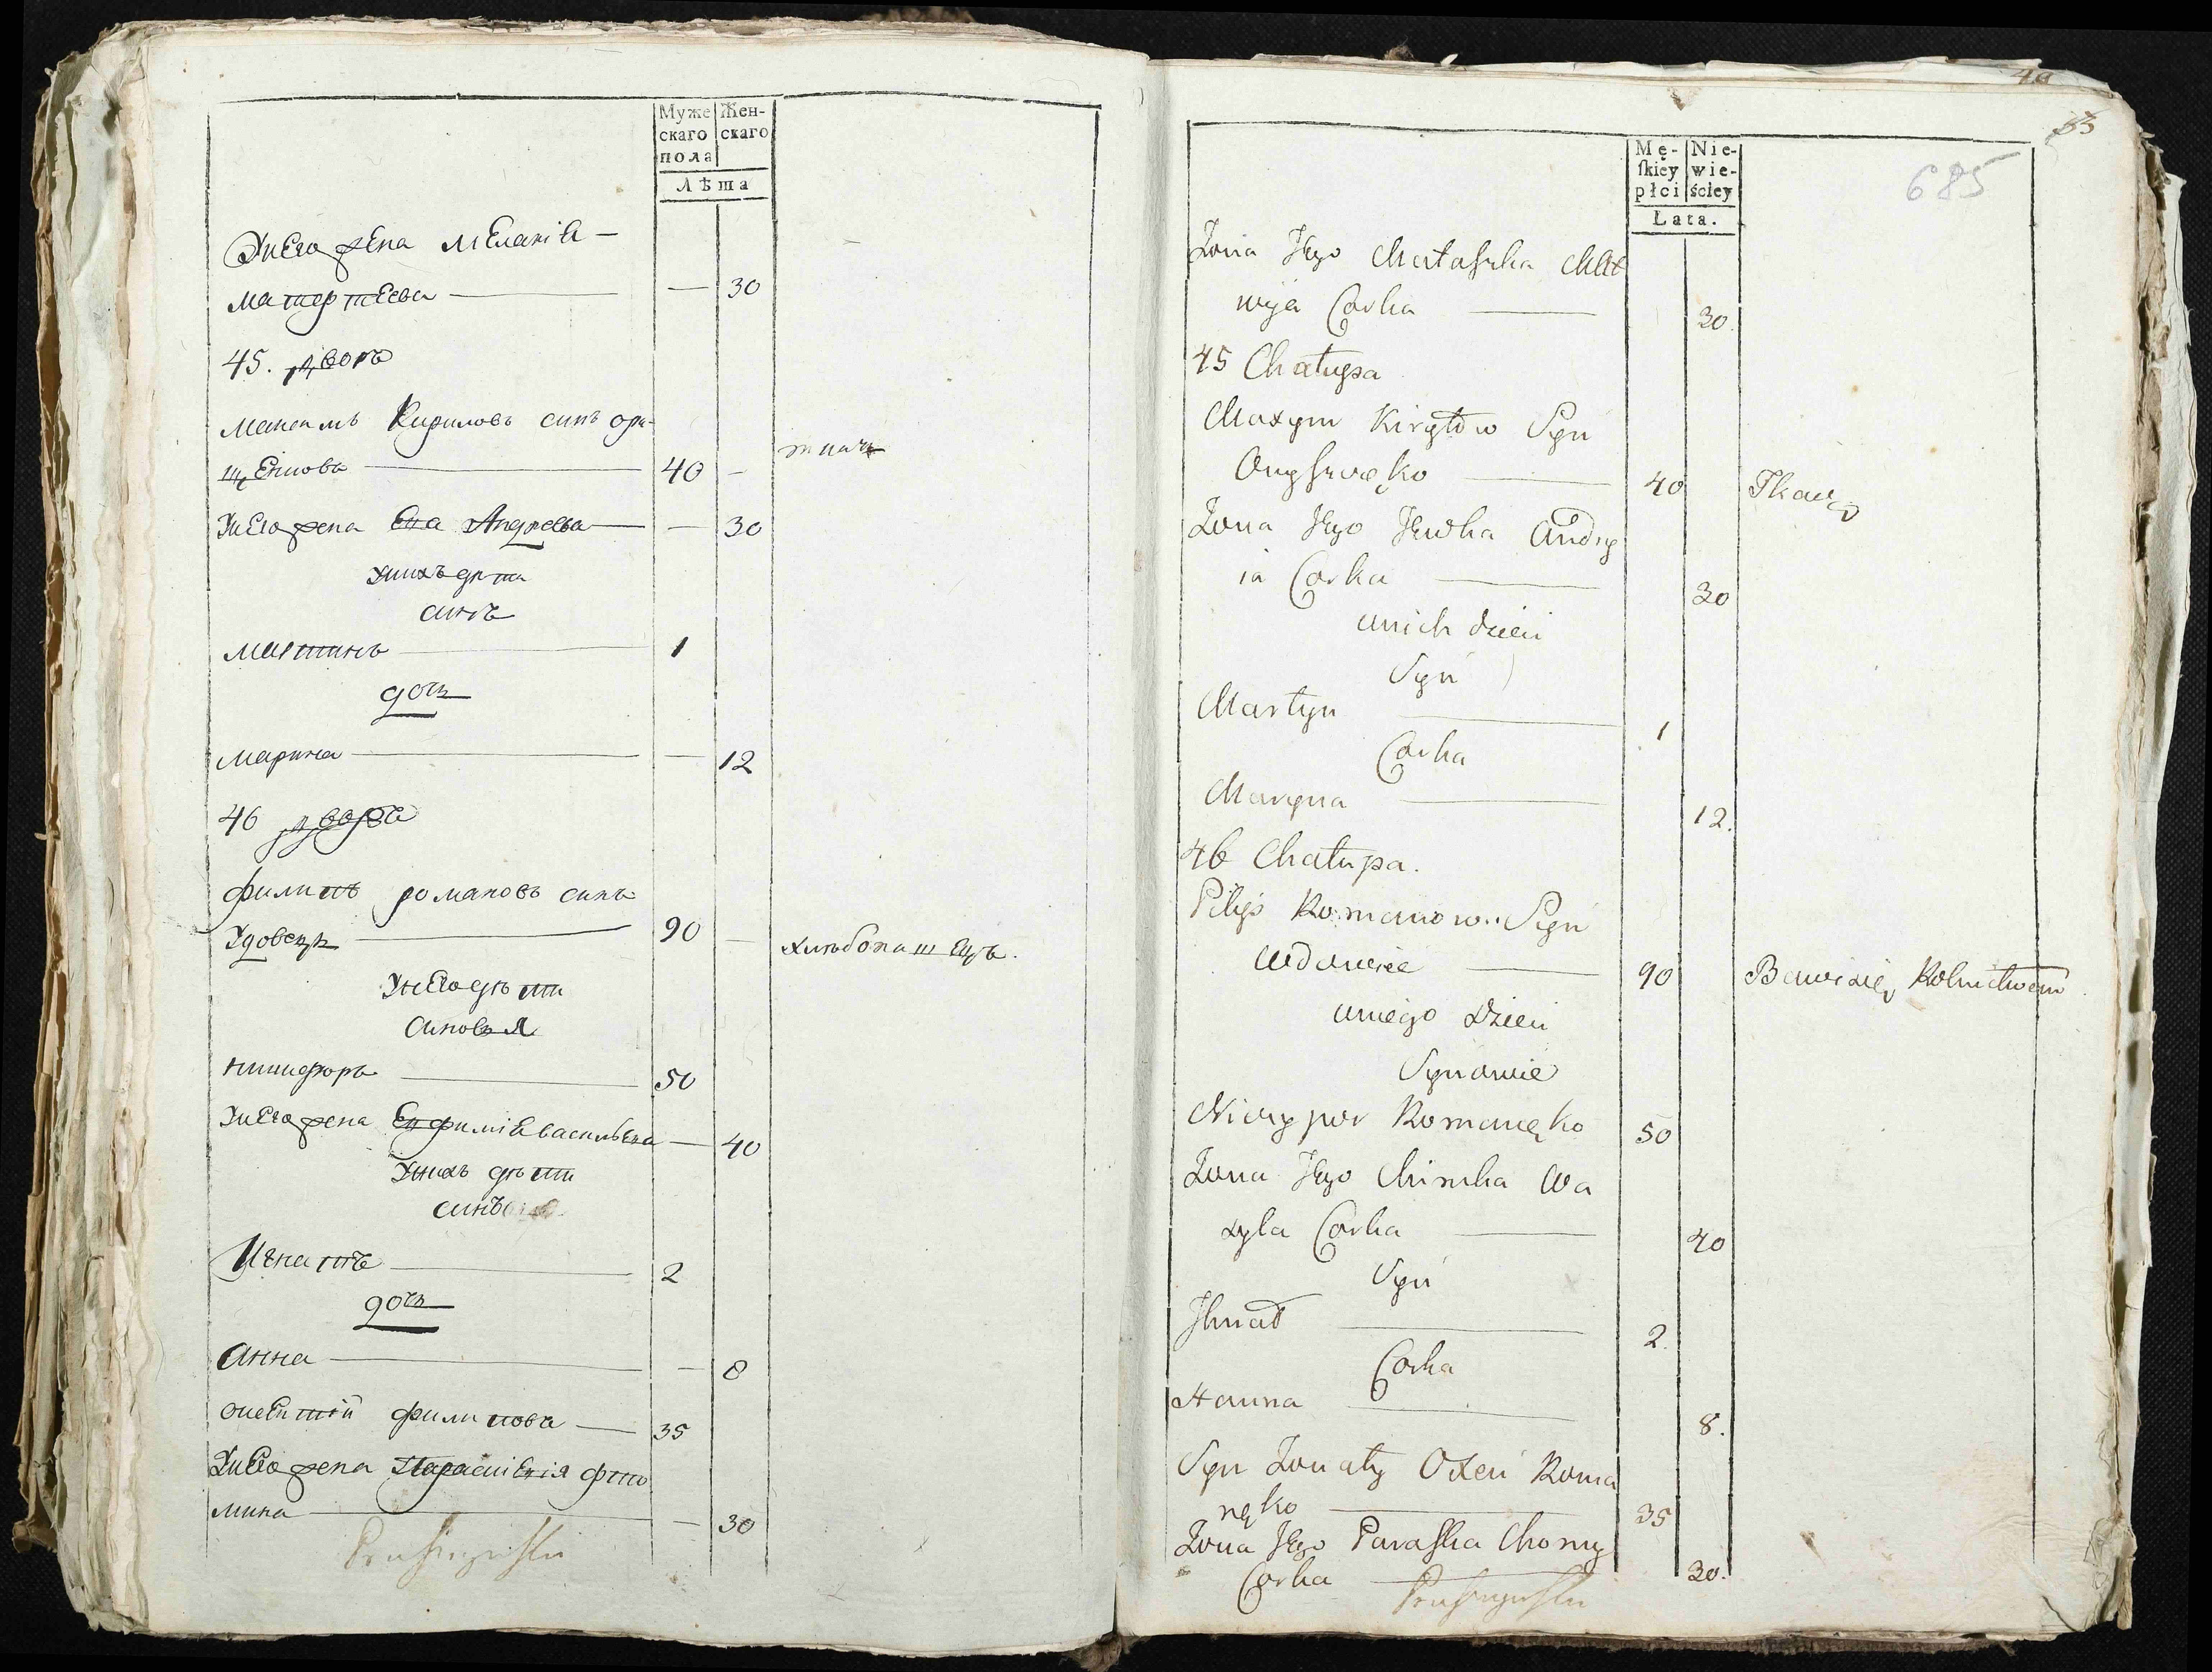 Муже
скаго
пола
Жен-
скаго
Лѣта
Унего жена Меланія —
Матфтеева — — 30
45. дворъ
Максимъ Кириловъ синъ Они-
щенковъ — 40 — ткачъ
Унего жена Ева Андреева — — 30
Унихъ дѣти
синъ
Мартинъ — 1
дочь
Марина — — 12
46 дворъ
Филипъ романовъ синъ
Удовецъ — 90 — хлѣбопашецъ.
Унего дѣти
Синовья
Никифоръ — 50
Унего жена Евфимія васильева — 40
Унихъ дѣти
синъ
Игнатъ — 2
дочь
Анна — — 8
филипова — 35
Унего жена Параскевія фто
мина — — 30
Mę-
skiey
płci
Nie-
wie-
ściey
Lata.
49
685
Zona Jego Mataszka Mat
wija Corka — 30.
45 Chałupa
Maxym Kiryłow Syn
Onyszczęko — 40 Tkacz
Zona Jego Jewka Andry
ia Corka — 30
unich dzieci
Syn
Martyn — 1
Corka
Maryna — 12.
46 Chałupa.
Pilip Romanow Syn
Wdowiec — 90 Bawi się Rolnictwem
uniego Dzieci
Synowie
Niczypor Romanęko 50
Zona Jego Chimka Wa
zyla Corka — 40
Syn
Jhnat — 2.
Corka
Hanna — 8.
Syn Zonaty Oxen Roma
nęko — 35
Zona Jego Paraska Chomy
Corka — 30.